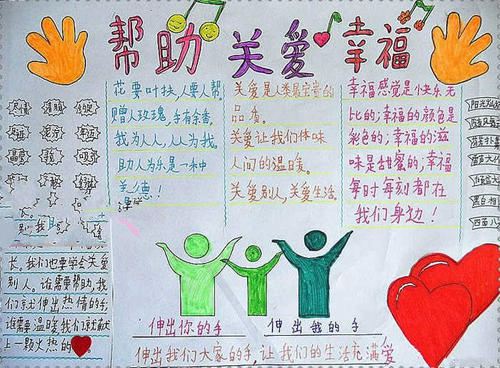 帮助 关爱 幸福
花要叶扶,人要人帮
赠人玫瑰,手有余香。
我为人人,人人为我。
助人为乐是一种
美德!
关爱是人类最宝贵的
品质。
关爱让我们体味
人间的温暖。
关爱别人,关爱生活
幸福感觉是快乐无
比的;幸福的颜色是
彩色的;幸福的滋
味是甜蜜的;幸福
每时每刻都在
我们身边!
长,我们也要学会关爱
别人。谁需要帮助,我
们就伸出热情的手;
谁需要温暖,我们就献
上一颗火热的
伸出你的手
伸出我的手
伸出我们大家的手,让我们的生活充满爱